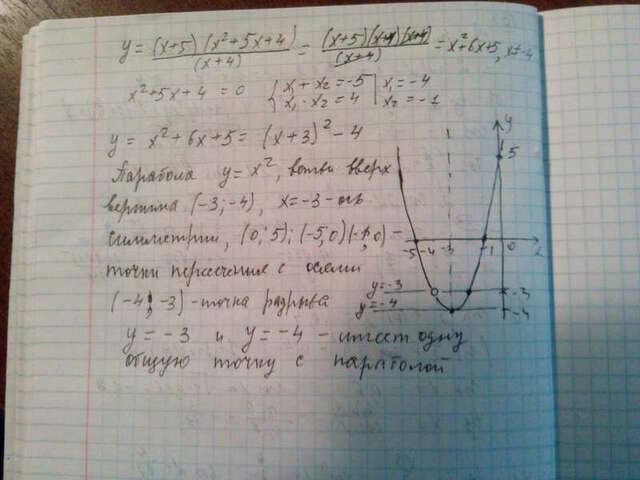 y = (x+5)(x²+5x+4)/(x+4) = (x+5)(x+1)(x+4)/(x+4) = x²+6x+5, x≠-4
x²+5x+4 = 0 { x₁+x₂=-5 x₁·x₂=4 | x₁=-4 x₂=-1
y = x²+6x+5 = (x+3)²-4
Парабола y=x², ветви вверх
вершина (-3;-4), x=-3-ось
симметрии, (0;5); (-5;0) (-1;0) -
точки пересечения с осями
(-4;-3)-точка разрыва
y=-3 и y=-4 - имеет одну
общую точку с параболой
y
5
-5 -4 -3 -1 0
y=-3 -3
y=-4 -4